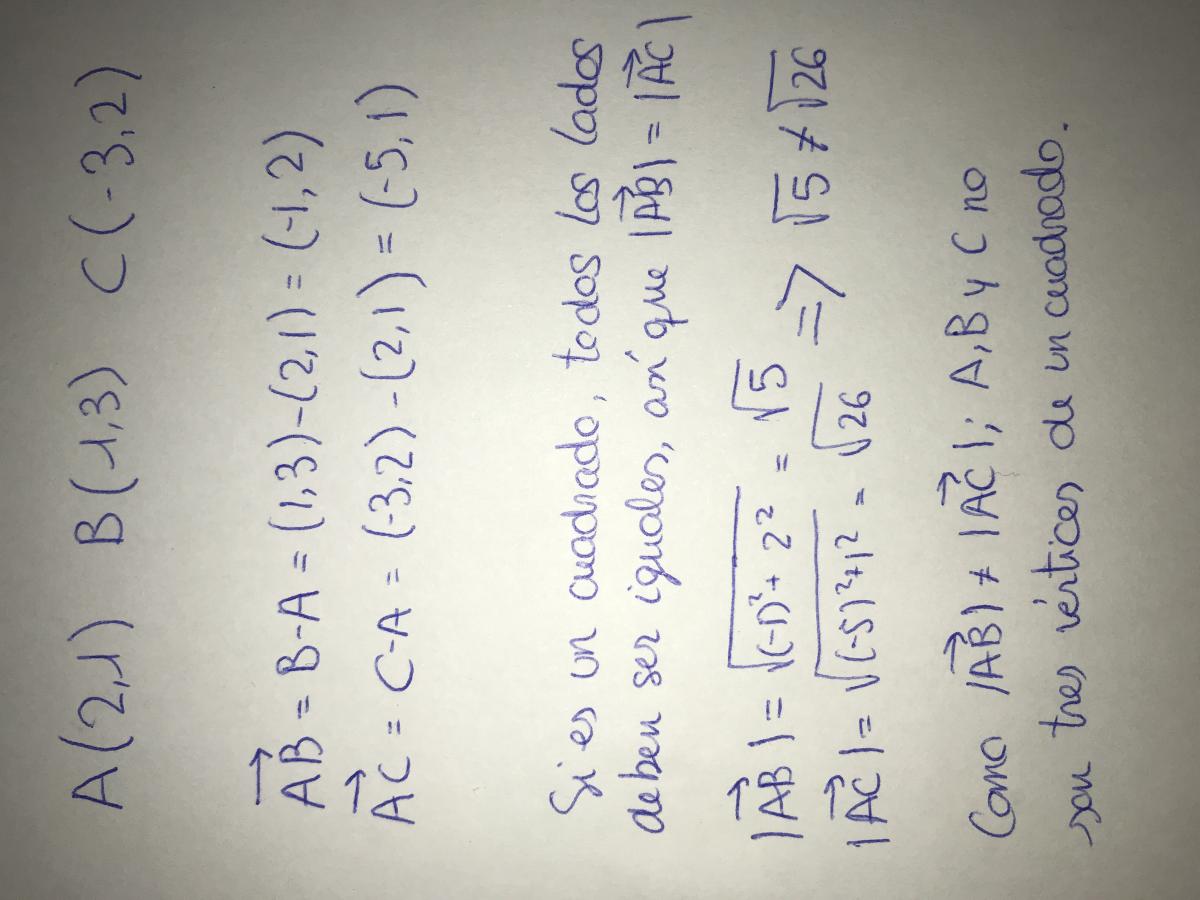 A(2,1) B(1,3) C(-3,2)
→AB = B-A = (1,3)-(2,1) = (-1,2)
→AC = C-A = (-3,2)-(2,1) = (-5,1)
Si es un cuadrado, todos los lados
deben ser iguales, así que |→AB| = |→AC|
|→AB| = √((-1)²+2²) = √5
|→AC| = √((-5)²+1²) = √26 => √5 ≠ √26
Como |→AB| ≠ |→AC|; A, B y C no
son tres vértices de un cuadrado.